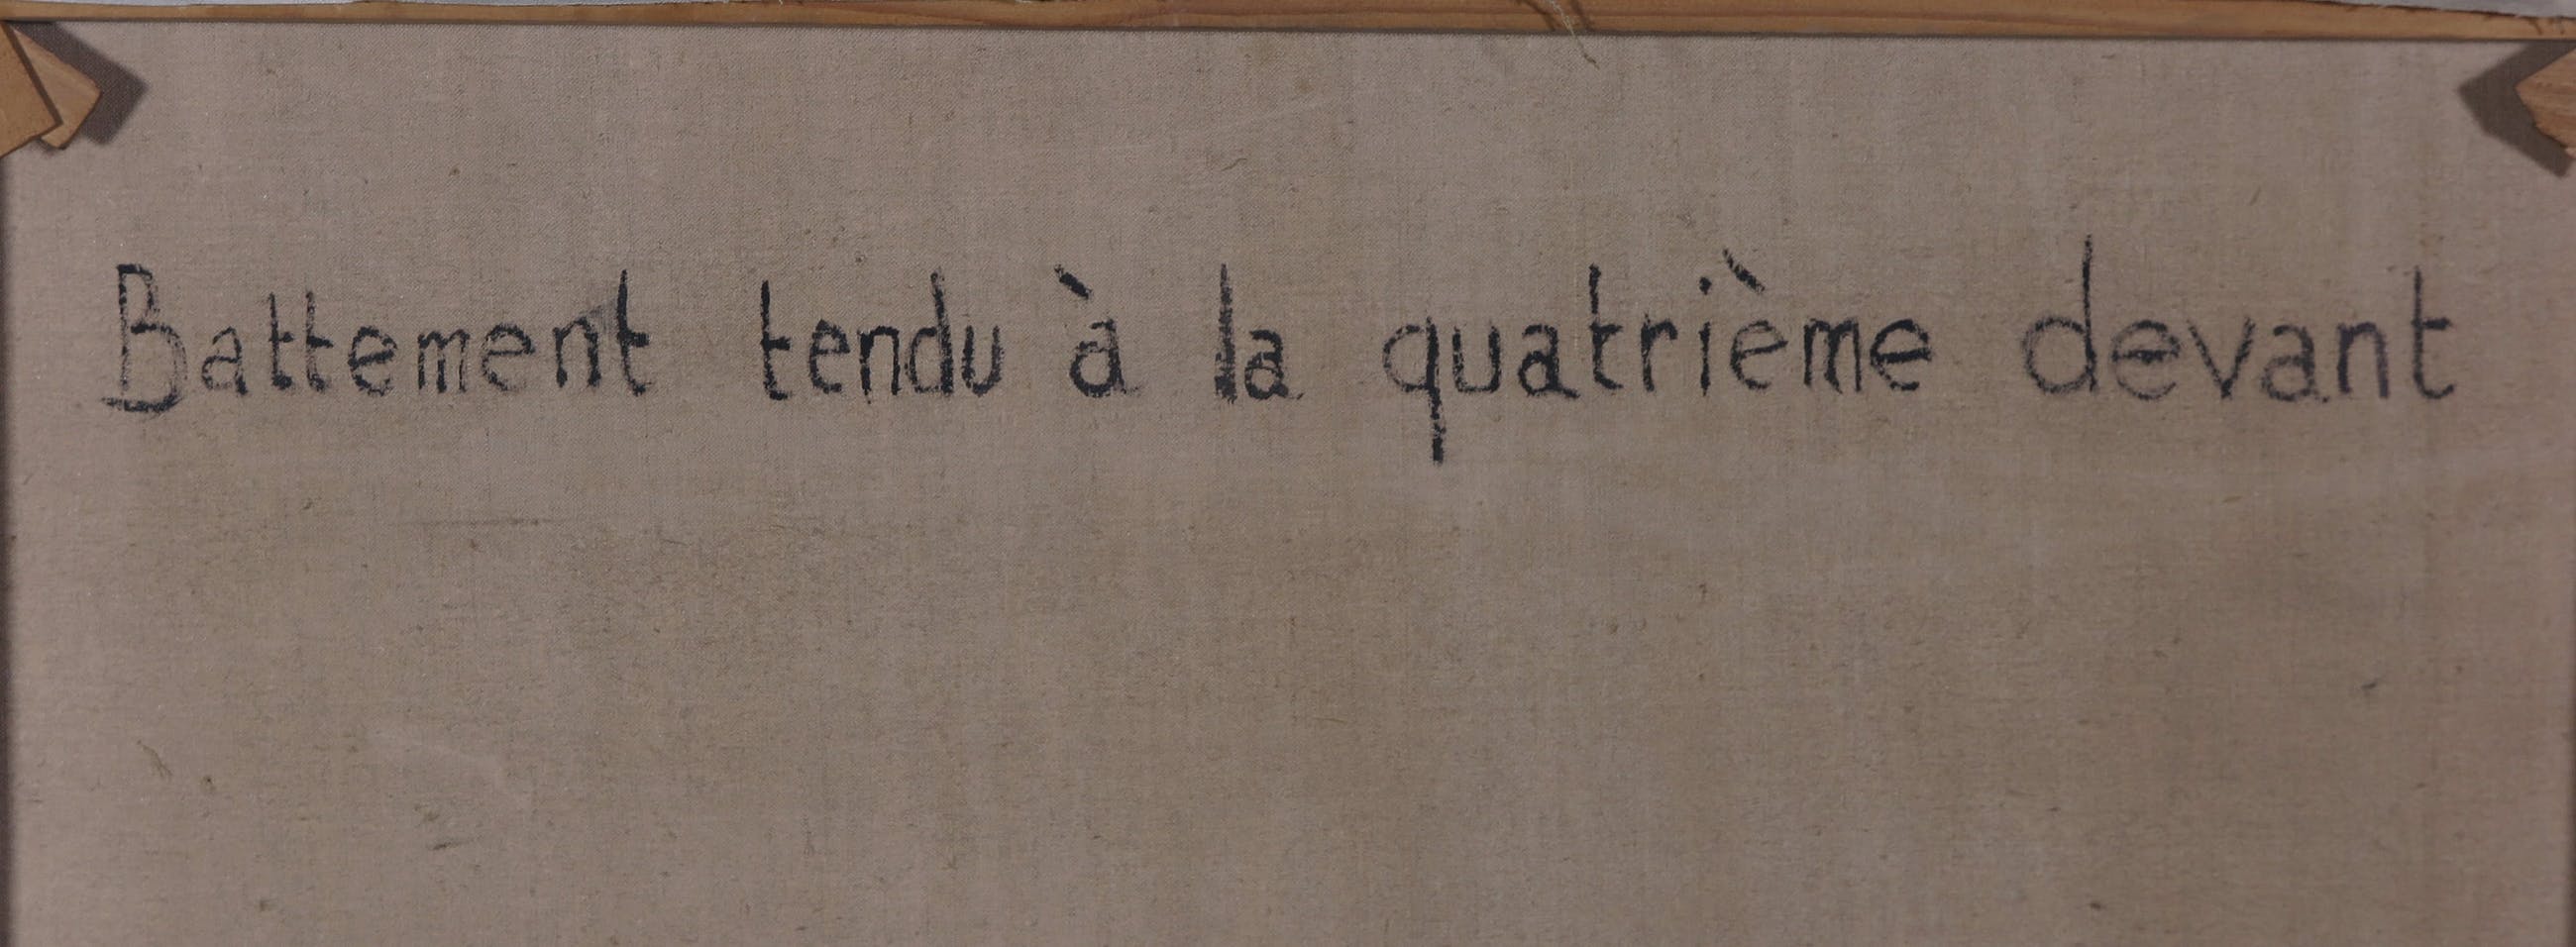 Battement tendu à la quatrième devant